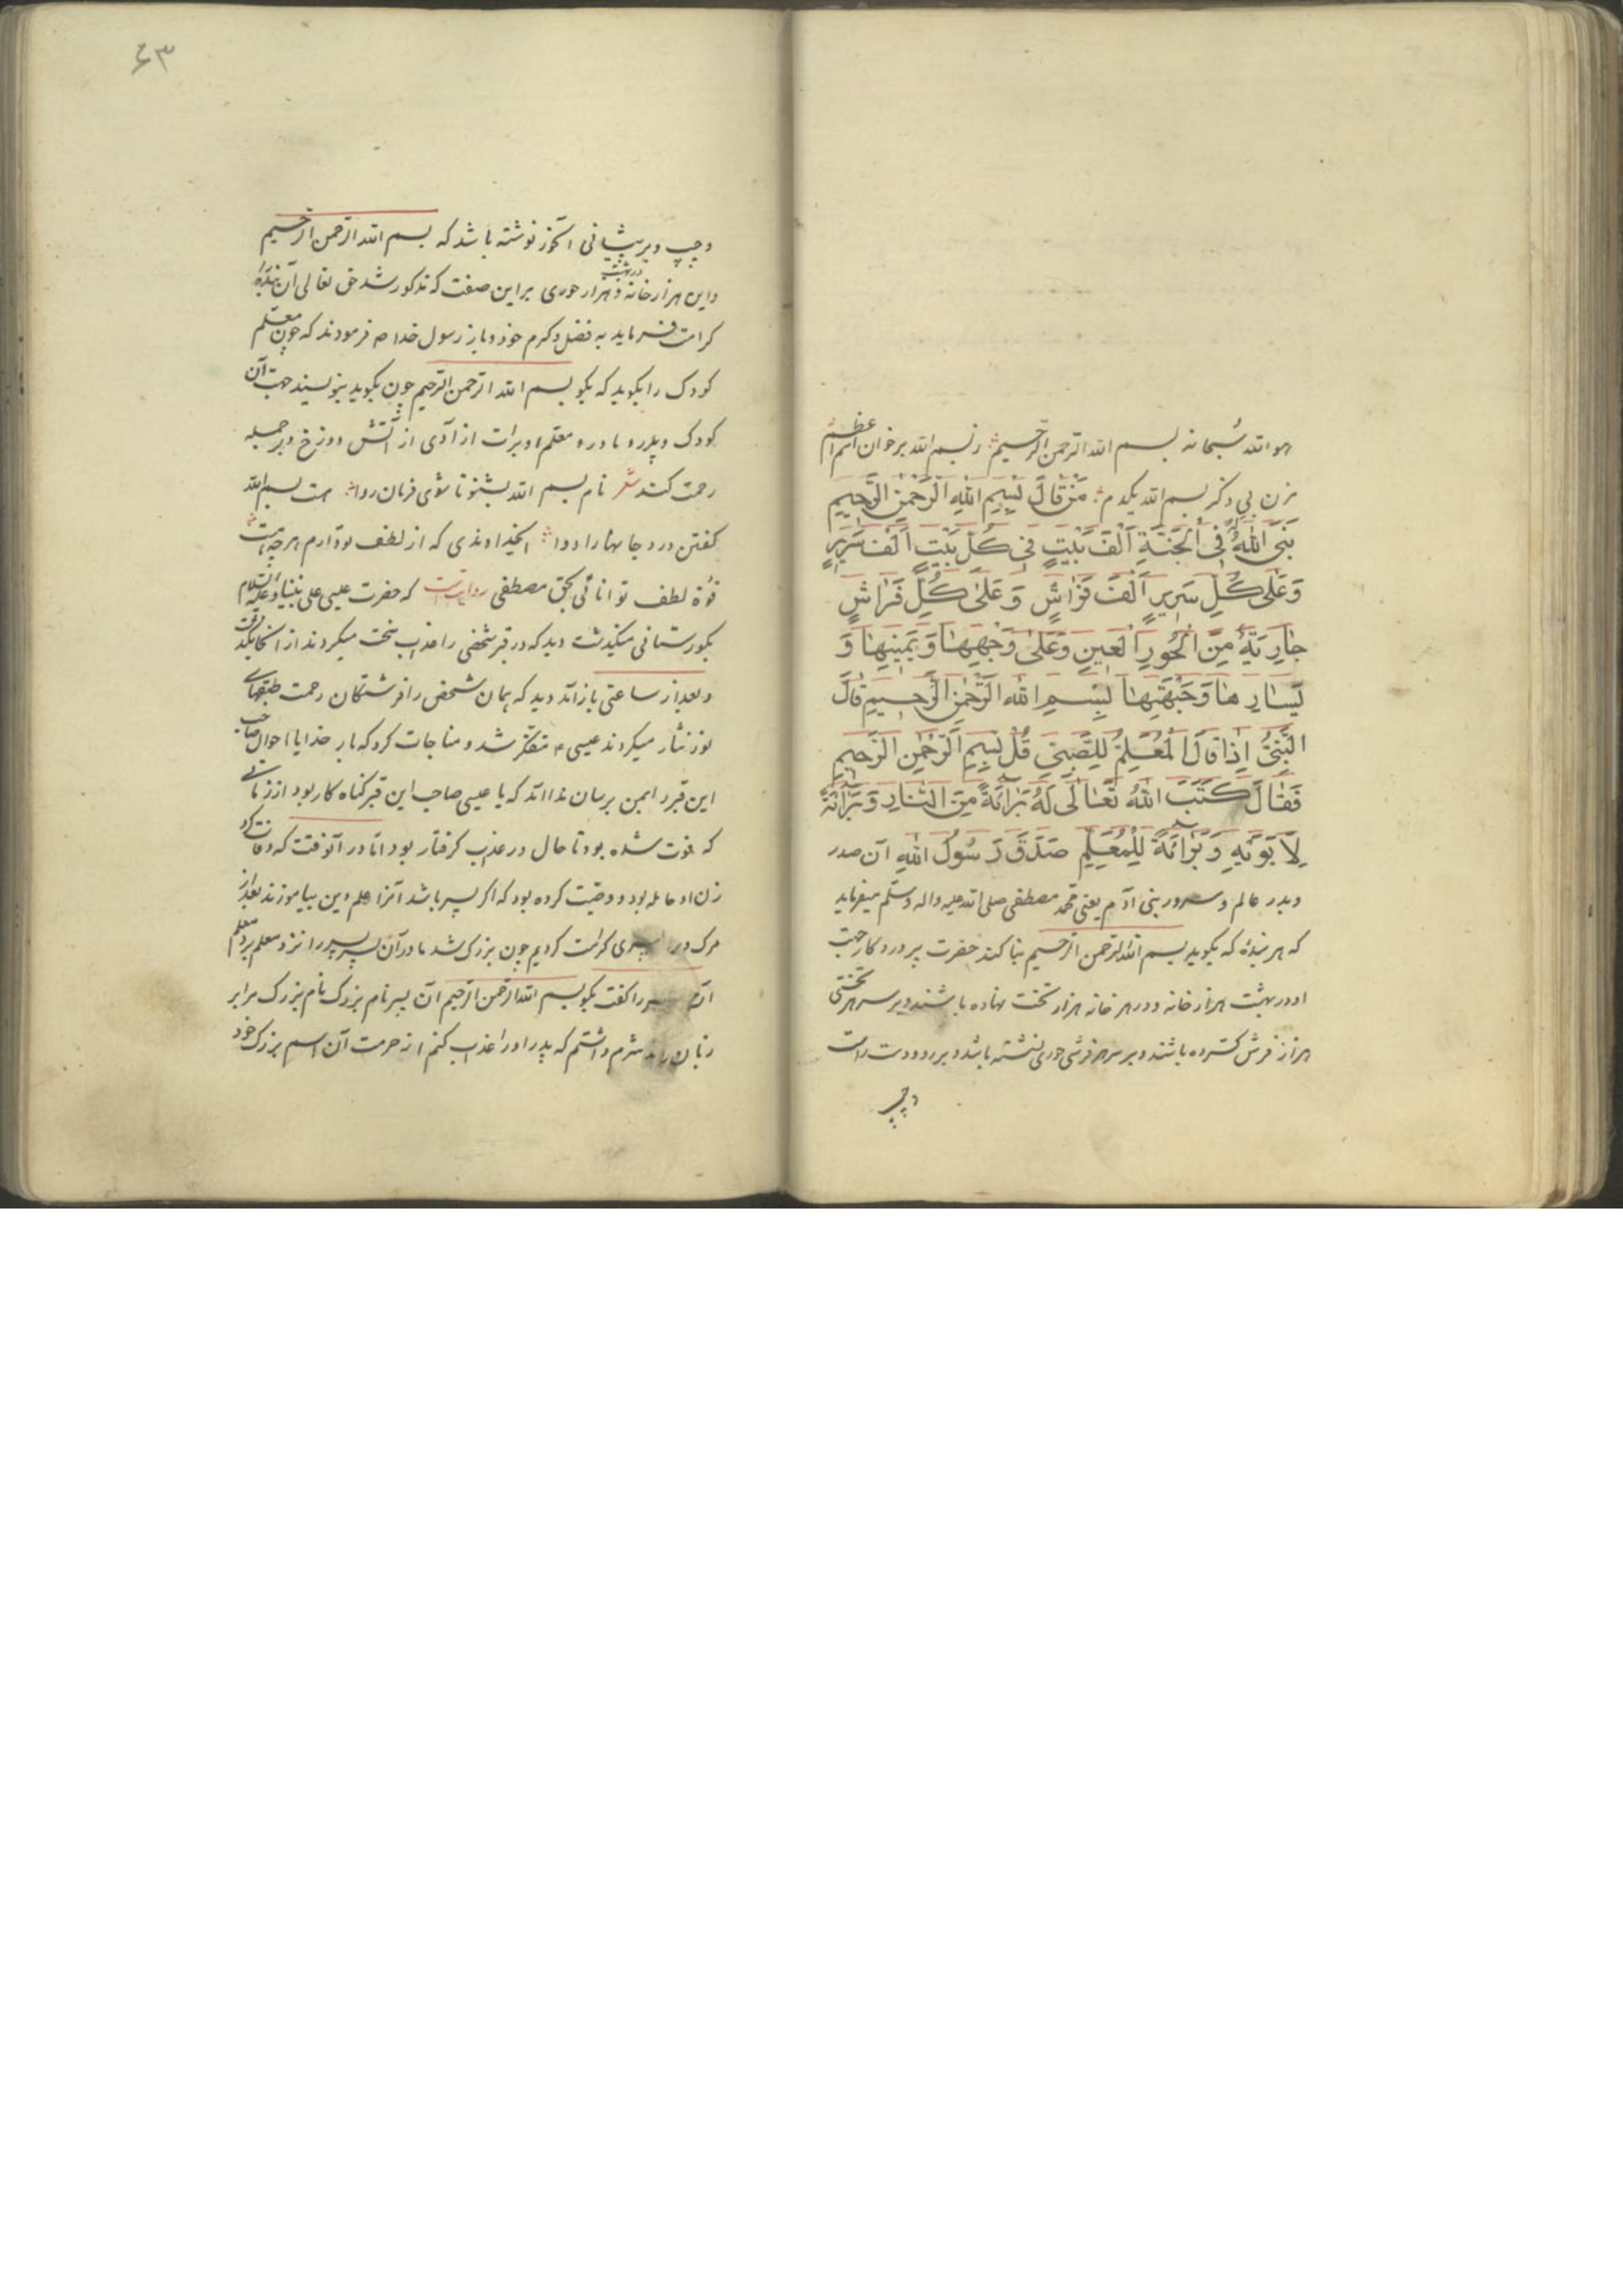 هو الله سبحانه بسم الله الرحمن الرحیم ز بسم الله برخوان اسم اعظم
مزن بی ذکر بسم الله یکدم مَنْ قَالَ بِسْمِ اللهِ الرَّحْمٰنِ الرَّحِیمِ
بَنَی اللهُ لَهُ فِی الْجَنَّةِ اَلْفَ بَیْتٍ فِی کُلِّ بَیْتٍ اَلْفَ سَرِیرٍ
وَعَلٰی کُلِّ سَرِیرٍ اَلْفَ فَرَاشٍ وَعَلٰی کُلِّ فَرَاشٍ
جٰارِیَةٌ مِنَ الْحُورِ الْعِینِ وَعَلٰی وَجْهِهٰا وَیَمِینِهٰا وَ
یَسٰارِهٰا وَجَبْهَتِهٰا بِسْمِ اللهِ الرَّحْمٰنِ الرَّحِیمِ قٰالَ
النَّبِیُّ اِذٰا قٰالَ الْمُعَلِّمُ لِلصَّبِیِّ قُلْ بِسْمِ الرَّحْمٰنِ الرَّحِیمِ
فَقٰالَ کَتَبَ اللهُ تَعٰالَی لَهُ بَرٰائَةً مِنَ النّٰارِ وَبَرٰائَةً
لِاَبَوَیْهِ وَبَرٰائَةً لِلْمُعَلِّمِ صَدَقَ رَسُولُ اللهِ آن صدر
وبدر عالم وسرور بنی آدم یعنی محمد مصطفی صلی الله علیه واله وسلم میفرماید
که هر بندهٔ که بکوید بسم الله الرحمن الرحیم بنا کند حضرت پروردکار جهت
او در بهشت هزار خانه ودر هر خانه هزار تخت نهاده باشند وبر سر هر تختی
هزار فرش کسترده باشند وبر سر هر فرشی حوری نشسته باشد وبر رو ودست راست
وچپ
۶۳
وچپ وبر پیشانی آنحور نوشته باشد که بسم الله الرحمن الرحیم
واین هزار خانه در بهشت وهزار حوری بر این صفت که مذکور شد حق تعالی آن بنده را
کرامت فرماید به فضل وکرم خود وباز رسول خدا ص فرمودند که چون معلم
کودک را بکوید که بکو بسم الله الرحمن الرحیم چون بکوید بنویسند جهت آن
کودک وپدر ومادر ومعلم او برات از آدی از آتش دوزخ وبر جمله
رحمت کند شعر نام بسم الله بشنو تا شوی فرمان روا هست بسم الله
کفتن درد جانها را دوا ایخداوندی که از لطف تو دارم هر چه هست
قوة لطف توانائی بحق مصطفی روایتست که حضرت عیسی علی نبینا وعلیه السلام
بکورستانی میکذشت دید که در قبر شخصی را عذاب سخت میکردند از آنجا بکذشت
وبعد از ساعتی باز آمد دید که همان شخص را فرشتکان رحمت طبقهای
نور نثار میکردند عیسی ع متفکر شد ومناجات کرد که بار خدایا احوال صاحب
این قبر را بمن برسان ندا آمد که یا عیسی صاحب این قبر کناه کار بود از زمانی
که فوت شده بود تا حال در عذاب کرفتار بود اما در آنوقت که وفات کرد
زن او حامله بود ووصیت کرده بود که اکر پسر باشد آنرا علم دین بیاموزند بعد از
مرک در پسری کرامت کردیم چون بزرک شد مادر آن پسر پسر را نزد معلم برد معلم
آن پسر را کفت بکو بسم الله الرحمن الرحیم آن پسر نام بزرک نام بزرک مرا بر
زبان راند شرم داشتم که پدر او را عذاب کنم از حرمت آن اسم بزرک خود